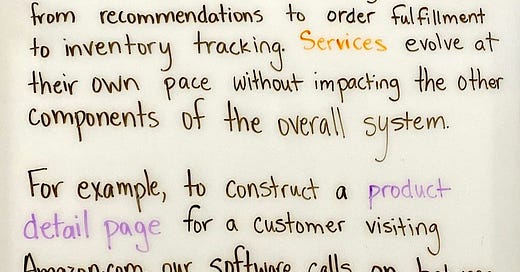 from recommendations to order fulfillment
to inventory tracking. Services evolve at
their own pace without impacting the other
components of the overall system.
For example, to construct a product
detail page for a customer visiting
Amazon.com our software calls on between